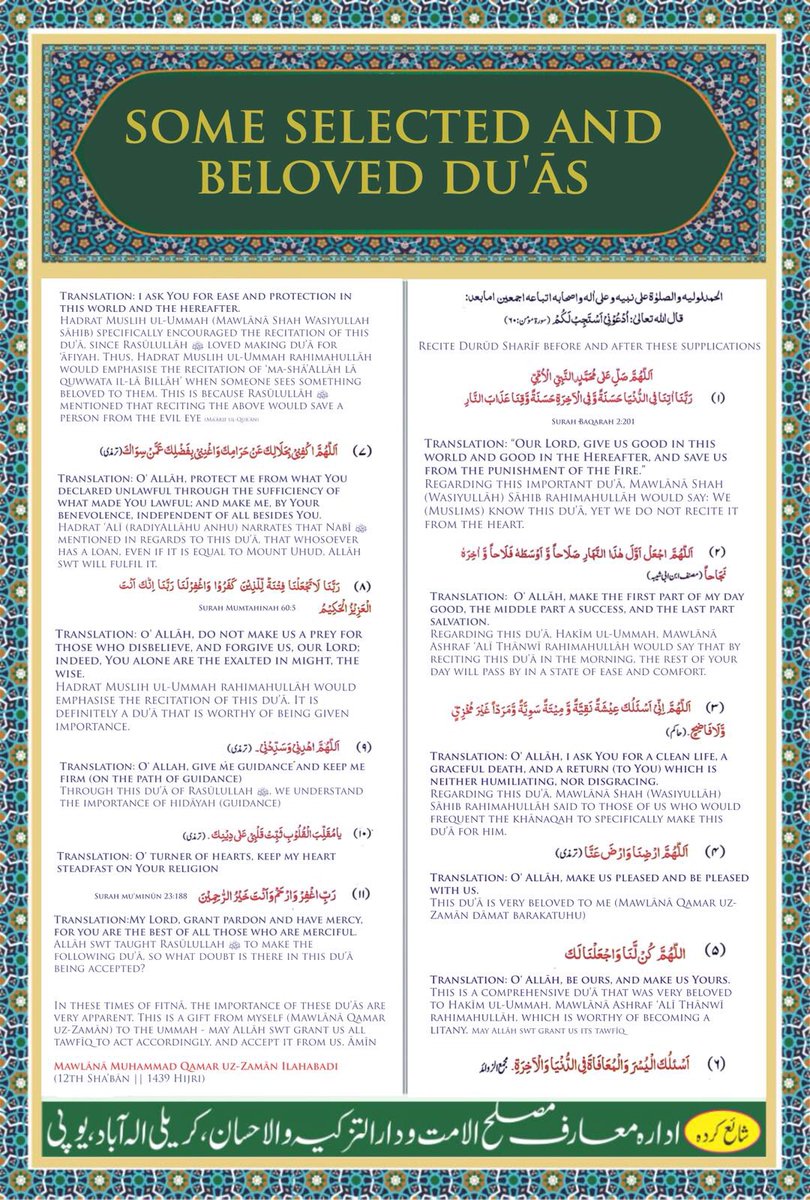 SOME SELECTED AND
BELOVED DU'ĀS
الحمدلولیه والصلوٰة علی نبیه وعلی اٰله واصحابه اتباعه اجمعین امابعد:
قال الله تعالیٰ: اُدْعُوْنِیْ اَسْتَجِبْ لَکُمْ (سورۃ مؤمن:۶۰)
RECITE DURŪD SHARĪF BEFORE AND AFTER THESE SUPPLICATIONS
اَللّٰهُمَّ صَلِّ عَلٰی مُحَمَّدِ النَّبِیِّ الْاُمِّیِّ
(۱) رَبَّنَا اٰتِنَا فِی الدُّنْیَا حَسَنَةً وَّ فِی الْاٰخِرَةِ حَسَنَةً وَّقِنَا عَذَابَ النَّارِ
SURAH BAQARAH 2:201
TRANSLATION: “OUR LORD, GIVE US GOOD IN THIS
WORLD AND GOOD IN THE HEREAFTER, AND SAVE US
FROM THE PUNISHMENT OF THE FIRE.”
REGARDING THIS IMPORTANT DU'Ā, MAWLĀNĀ SHAH
(WASIYULLĀH) SĀHIB RAHIMAHULLĀH WOULD SAY: WE
(MUSLIMS) KNOW THIS DU'Ā, YET WE DO NOT RECITE IT
FROM THE HEART.
(۲) اَللّٰهُمَّ اجْعَلْ اَوَّلَ هٰذَا النَّهَارِ صَلَاحاً وَّ اَوْسَطَهٗ فَلَاحاً وَّ اٰخِرَهٗ
نَجَاحاً (مصنف ابن ابی شیبہ)
TRANSLATION: O' ALLĀH, MAKE THE FIRST PART OF MY DAY
GOOD, THE MIDDLE PART A SUCCESS, AND THE LAST PART
SALVATION.
REGARDING THIS DU'Ā, HAKĪM UL-UMMAH, MAWLĀNĀ
ASHRAF 'ALĪ THĀNWĪ RAHIMAHULLĀH WOULD SAY THAT BY
RECITING THIS DU'Ā IN THE MORNING, THE REST OF YOUR
DAY WILL PASS BY IN A STATE OF EASE AND COMFORT.
(۳) اَللّٰهُمَّ اِنِّیْ اَسْئَلُكَ عِیْشَةً نَقِیَّةً وَّ مِیْتَةً سَوِیَّةً وَّمَرَدًّا غَیْرَ مُخْزِیٍّ
وَّلَا فَاضِحٍ (حاکم)
TRANSLATION: O' ALLĀH, I ASK YOU FOR A CLEAN LIFE, A
GRACEFUL DEATH, AND A RETURN (TO YOU) WHICH IS
NEITHER HUMILIATING, NOR DISGRACING.
REGARDING THIS DU'Ā, MAWLĀNĀ SHAH (WASIYULLĀH)
SĀHIB RAHIMAHULLĀH SAID TO THOSE OF US WHO WOULD
FREQUENT THE KHĀNAQAH TO SPECIFICALLY MAKE THIS
DU'Ā FOR HIM.
(۴) اَللّٰهُمَّ اَرْضِنَا وَارْضَ عَنَّا (ترمذی)
TRANSLATION: O' ALLĀH, MAKE US PLEASED AND BE PLEASED
WITH US.
THIS DU'Ā IS VERY BELOVED TO ME (MAWLĀNĀ QAMAR UZ-
ZAMĀN DĀMAT BARAKATUHU)
(۵) اَللّٰهُمَّ كُنْ لَّنَا وَاجْعَلْنَا لَكَ
TRANSLATION: O' ALLĀH, BE OURS, AND MAKE US YOURS.
THIS IS A COMPREHENSIVE DU'Ā THAT WAS VERY BELOVED
TO HAKĪM UL-UMMAH, MAWLĀNĀ ASHRAF 'ALĪ THĀNWĪ
RAHIMAHULLĀH, WHICH IS WORTHY OF BECOMING A
LITANY. MAY ALLĀH SWT GRANT US ITS TAWFĪQ
(۶) اَسْئَلُكَ الْیُسْرَ وَالْمُعَافَاةَ فِی الدُّنْیَا وَالْاٰخِرَةِ۔ مجمع الزوائد
TRANSLATION: I ASK YOU FOR EASE AND PROTECTION IN
THIS WORLD AND THE HEREAFTER.
HADRAT MUSLIH UL-UMMAH (MAWLĀNĀ SHAH WASIYULLAH
SĀHIB) SPECIFICALLY ENCOURAGED THE RECITATION OF THIS
DU'Ā, SINCE RASŪLULLĀH ﷺ LOVED MAKING DU'Ā FOR
'ĀFIYAH. THUS, HADRAT MUSLIH UL-UMMAH RAHIMAHULLĀH
WOULD EMPHASISE THE RECITATION OF 'MA-SHĀ'ALLĀH LĀ
QUWWATA IL-LĀ BILLĀH' WHEN SOMEONE SEES SOMETHING
BELOVED TO THEM. THIS IS BECAUSE RASŪLULLĀH ﷺ
MENTIONED THAT RECITING THE ABOVE WOULD SAVE A
PERSON FROM THE EVIL EYE (MA'ĀRIF UL-QUR'ĀN)
(۷) اَللّٰهُمَّ اكْفِنِیْ بِحَلَالِكَ عَنْ حَرَامِكَ وَاَغْنِنِیْ بِفَضْلِكَ عَمَّنْ سِوَاكَ (ترمذی)
TRANSLATION: O' ALLĀH, PROTECT ME FROM WHAT YOU
DECLARED UNLAWFUL THROUGH THE SUFFICIENCY OF
WHAT MADE YOU LAWFUL; AND MAKE ME, BY YOUR
BENEVOLENCE, INDEPENDENT OF ALL BESIDES YOU.
HADRAT 'ALĪ (RADIYALLĀHU ANHU) NARRATES THAT NABĪ ﷺ
MENTIONED IN REGARDS TO THIS DU'Ā, THAT WHOSOEVER
HAS A LOAN, EVEN IF IT IS EQUAL TO MOUNT UHUD, ALLĀH
SWT WILL FULFIL IT.
(۸) رَبَّنَا لَا تَجْعَلْنَا فِتْنَةً لِّلَّذِیْنَ كَفَرُوْا وَاغْفِرْلَنَا رَبَّنَا اِنَّكَ اَنْتَ
الْعَزِیْزُ الْحَكِیْمُ SURAH MUMTAHINAH 60:5
TRANSLATION: O' ALLĀH, DO NOT MAKE US A PREY FOR
THOSE WHO DISBELIEVE, AND FORGIVE US, OUR LORD;
INDEED, YOU ALONE ARE THE EXALTED IN MIGHT, THE
WISE.
HADRAT MUSLIH UL-UMMAH RAHIMAHULLĀH WOULD
EMPHASISE THE RECITATION OF THIS DU'Ā. IT IS
DEFINITELY A DU'Ā THAT IS WORTHY OF BEING GIVEN
IMPORTANCE.
(۹) اَللّٰهُمَّ اهْدِنِیْ وَسَدِّدْنِیْ۔ (ترمذی)
TRANSLATION: O' ALLAH, GIVE ME GUIDANCE AND KEEP ME
FIRM (ON THE PATH OF GUIDANCE)
THROUGH THIS DU'Ā OF RASŪLULLAH ﷺ, WE UNDERSTAND
THE IMPORTANCE OF HIDĀYAH (GUIDANCE)
(۱۰) یَا مُقَلِّبَ الْقُلُوْبِ ثَبِّتْ قَلْبِیْ عَلٰی دِیْنِكَ۔ (ترمذی)
TRANSLATION: O' TURNER OF HEARTS, KEEP MY HEART
STEADFAST ON YOUR RELIGION
(۱۱) رَبِّ اغْفِرْ وَارْحَمْ وَاَنْتَ خَیْرُ الرّٰحِمِیْنَ SURAH MU'MINŪN 23:188
TRANSLATION:MY LORD, GRANT PARDON AND HAVE MERCY,
FOR YOU ARE THE BEST OF ALL THOSE WHO ARE MERCIFUL.
ALLĀH SWT TAUGHT RASŪLULLAH ﷺ TO MAKE THE
FOLLOWING DU'Ā, SO WHAT DOUBT IS THERE IN THIS DU'Ā
BEING ACCEPTED?
IN THESE TIMES OF FITNĀ, THE IMPORTANCE OF THESE DU'ĀS ARE
VERY APPARENT. THIS IS A GIFT FROM MYSELF (MAWLĀNĀ QAMAR
UZ-ZAMĀN) TO THE UMMAH - MAY ALLĀH SWT GRANT US ALL
TAWFĪQ TO ACT ACCORDINGLY, AND ACCEPT IT FROM US. ĀMĪN
MAWLĀNĀ MUHAMMAD QAMAR UZ-ZAMĀN ILAHABADI
(12TH SHA'BĀN || 1439 HIJRI)
شائع کردہ ادارہ معارف مصلح الامت و دار التزکیہ والاحسان، کریلی الہ آباد، یوپی